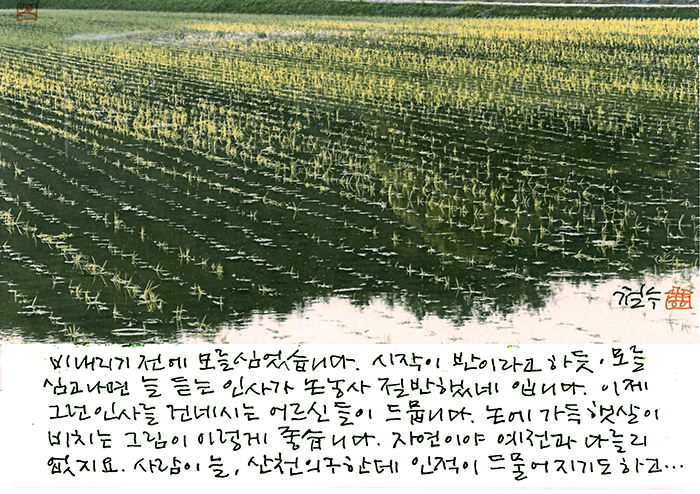 철수
비 내리기 전에 모를 심었습니다. 시작이 반이라고 하듯. 모를
심고나면 늘 듣는 인사가 논농사 절반했네 입니다. 이제
그런 인사를 건네시는 어르신들이 드뭅니다. 논에 가득 햇살이
비치는 그림이 이렇게 좋습니다. 자연이야 예전과 다를리
없지요. 사람이 늘, 산천의구한데 인적이 드물어지기도 하고...